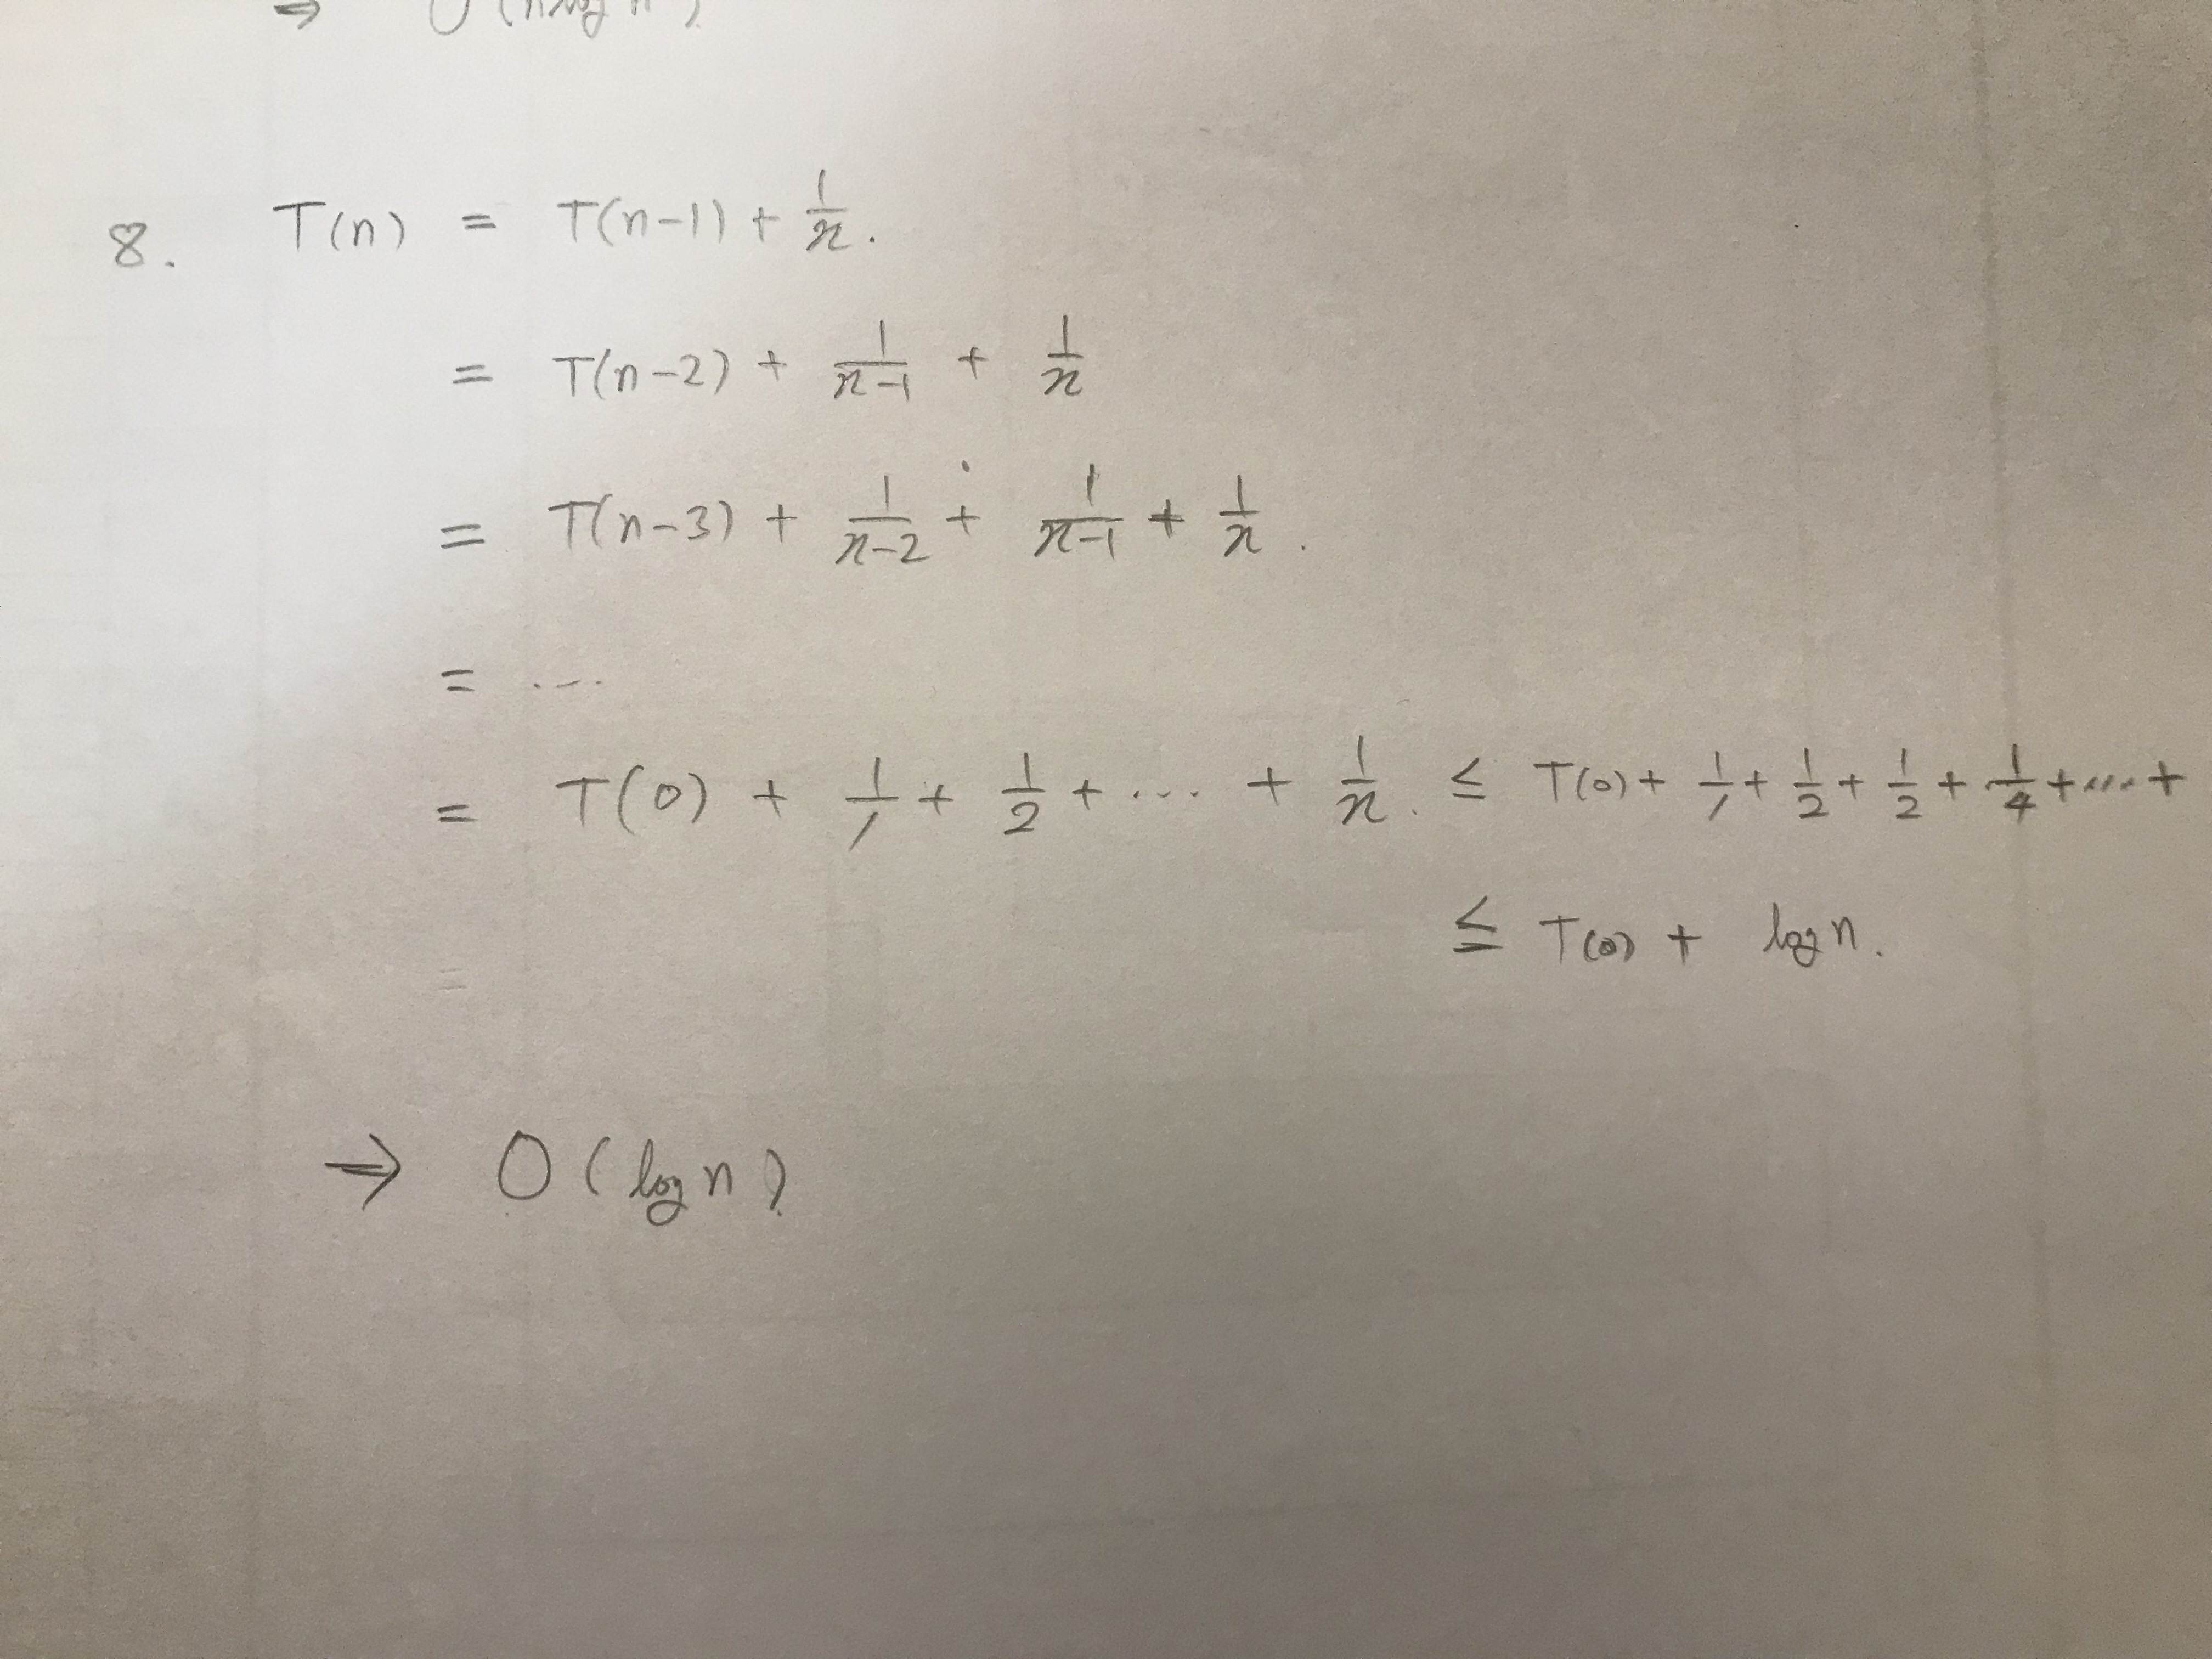 ⇒ O(n log n)
8. T(n) = T(n-1) + 1/n.
= T(n-2) + 1/(n-1) + 1/n
= T(n-3) + 1/(n-2) + 1/(n-1) + 1/n.
= ...
= T(0) + 1/1 + 1/2 + ... + 1/n. ≤ T(0) + 1/1 + 1/2 + 1/2 + 1/4 + ... +
≤ T(0) + log n.
→ O(log n)